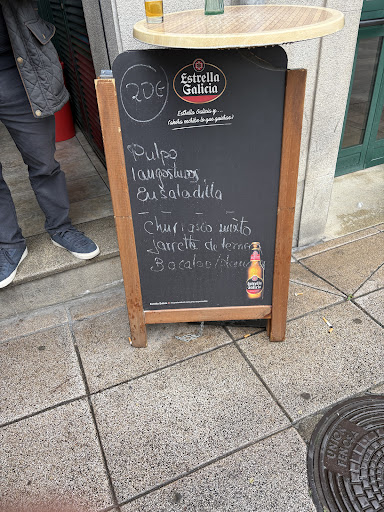 20€
Estrella
Galicia
Estrella Galicia y...
Pulpo
Langostinos
Ensaladilla
Churrasco mixto
Jarrete de ternera
Bacalao/
Estrella
Galicia